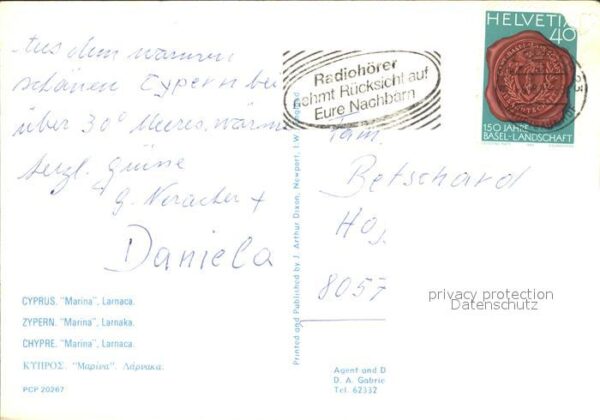 Aus dem warmen
schönen Zypern bei
über 30° Meereswärme
herzl. Grüsse
+
Daniela
CYPRUS. "Marina", Larnaca.
ZYPERN. "Marina", Larnaka.
CHYPRE. "Marina", Larnaca.
ΚΥΠΡΟΣ. "Μαρίνα". Λάρνακα.
PCP 20267
Printed and Published by J. Arthur Dixon, Newport, I.W. England
Radiohörer
nehmt Rücksicht auf
Eure Nachbarn
HELVETIA
40
150 JAHRE
BASEL-LANDSCHAFT
Fam.
Betschard
8057
privacy protection
Datenschutz
Agent and D
D. A. Gabrie
Tel. 62332